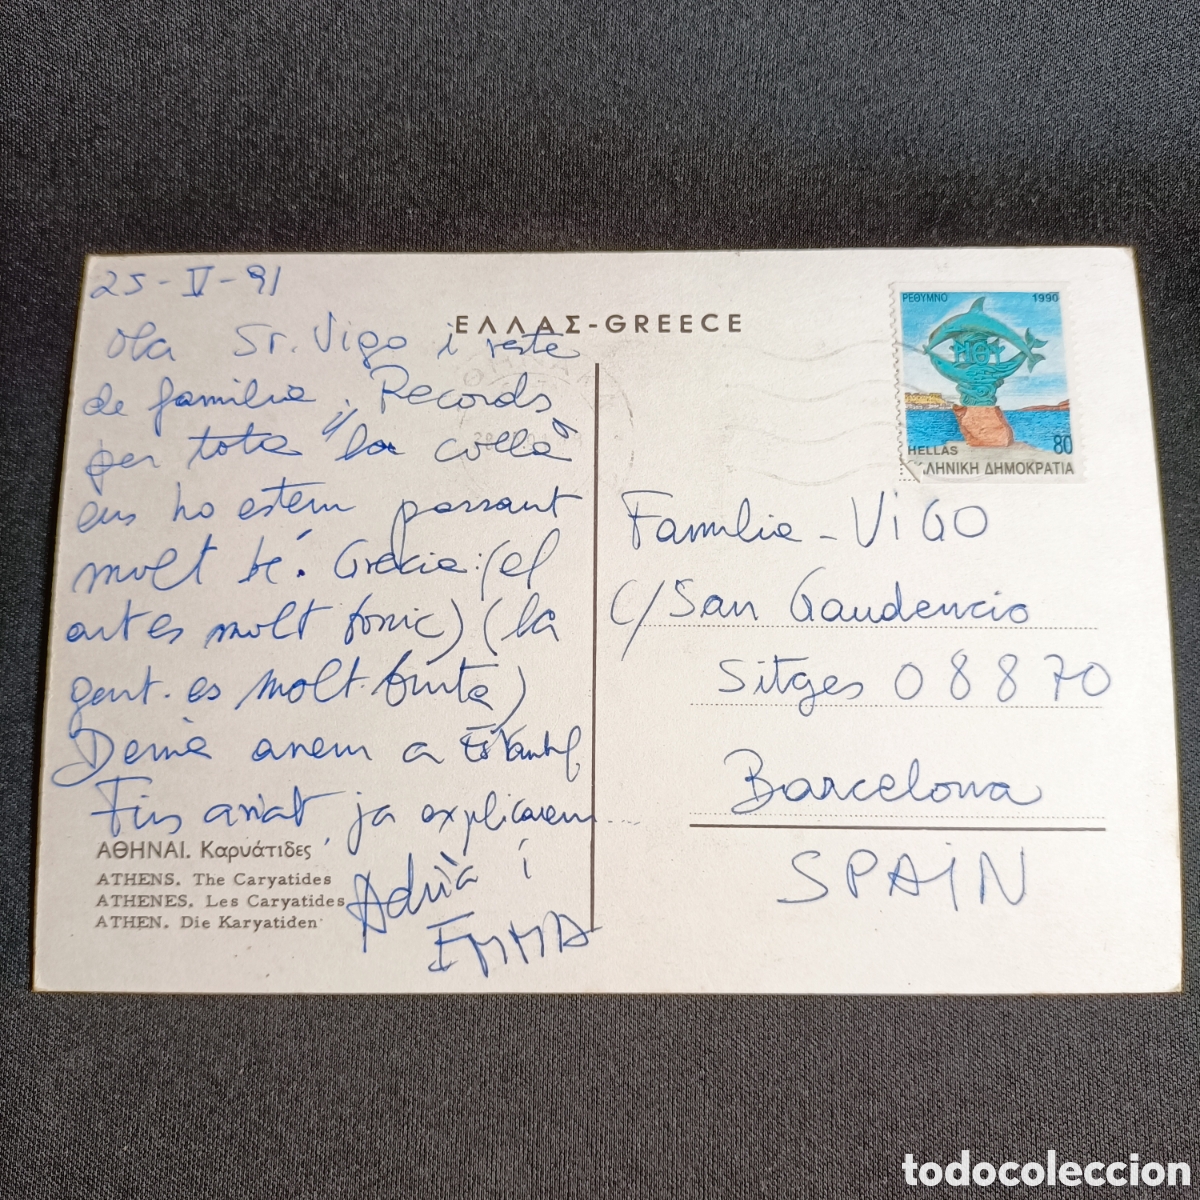 25-V-91
ΕΛΛΑΣ-GREECE
Ola Sr. Vigo i resta
de familia, Records
per tota "la colla"
ens ho estem passant
molt bé. Grecia: (el
art es molt bonic) (la
gent. es molt. bruta)
Demà anem a Estambul,
Fins aviat, ja explicarem...
Adrià i
EMMA
ΑΘΗΝΑΙ. Καρυάτιδες
ATHENS. The Caryatides
ATHENES. Les Caryatides
ATHEN. Die Karyatiden
ΡΕΘΥΜΝΟ 1990
HELLAS 80
ΛΗΝΙΚΗ ΔΗΜΟΚΡΑΤΙΑ
Familia - ViGO
C/San Gaudencio
Sitges 08870
Barcelona
SPAIN
todocoleccion